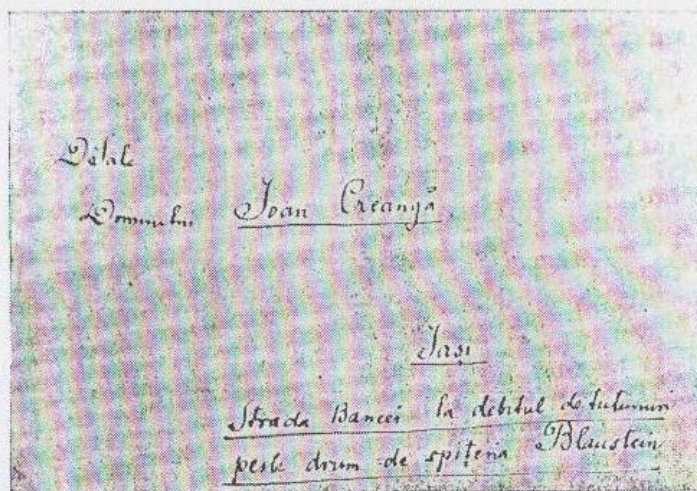 D-sale
Domnului Ioan Creangă
Iași
Strada Bancei la debitul de tutunuri
peste drum de spiteria Blaustein